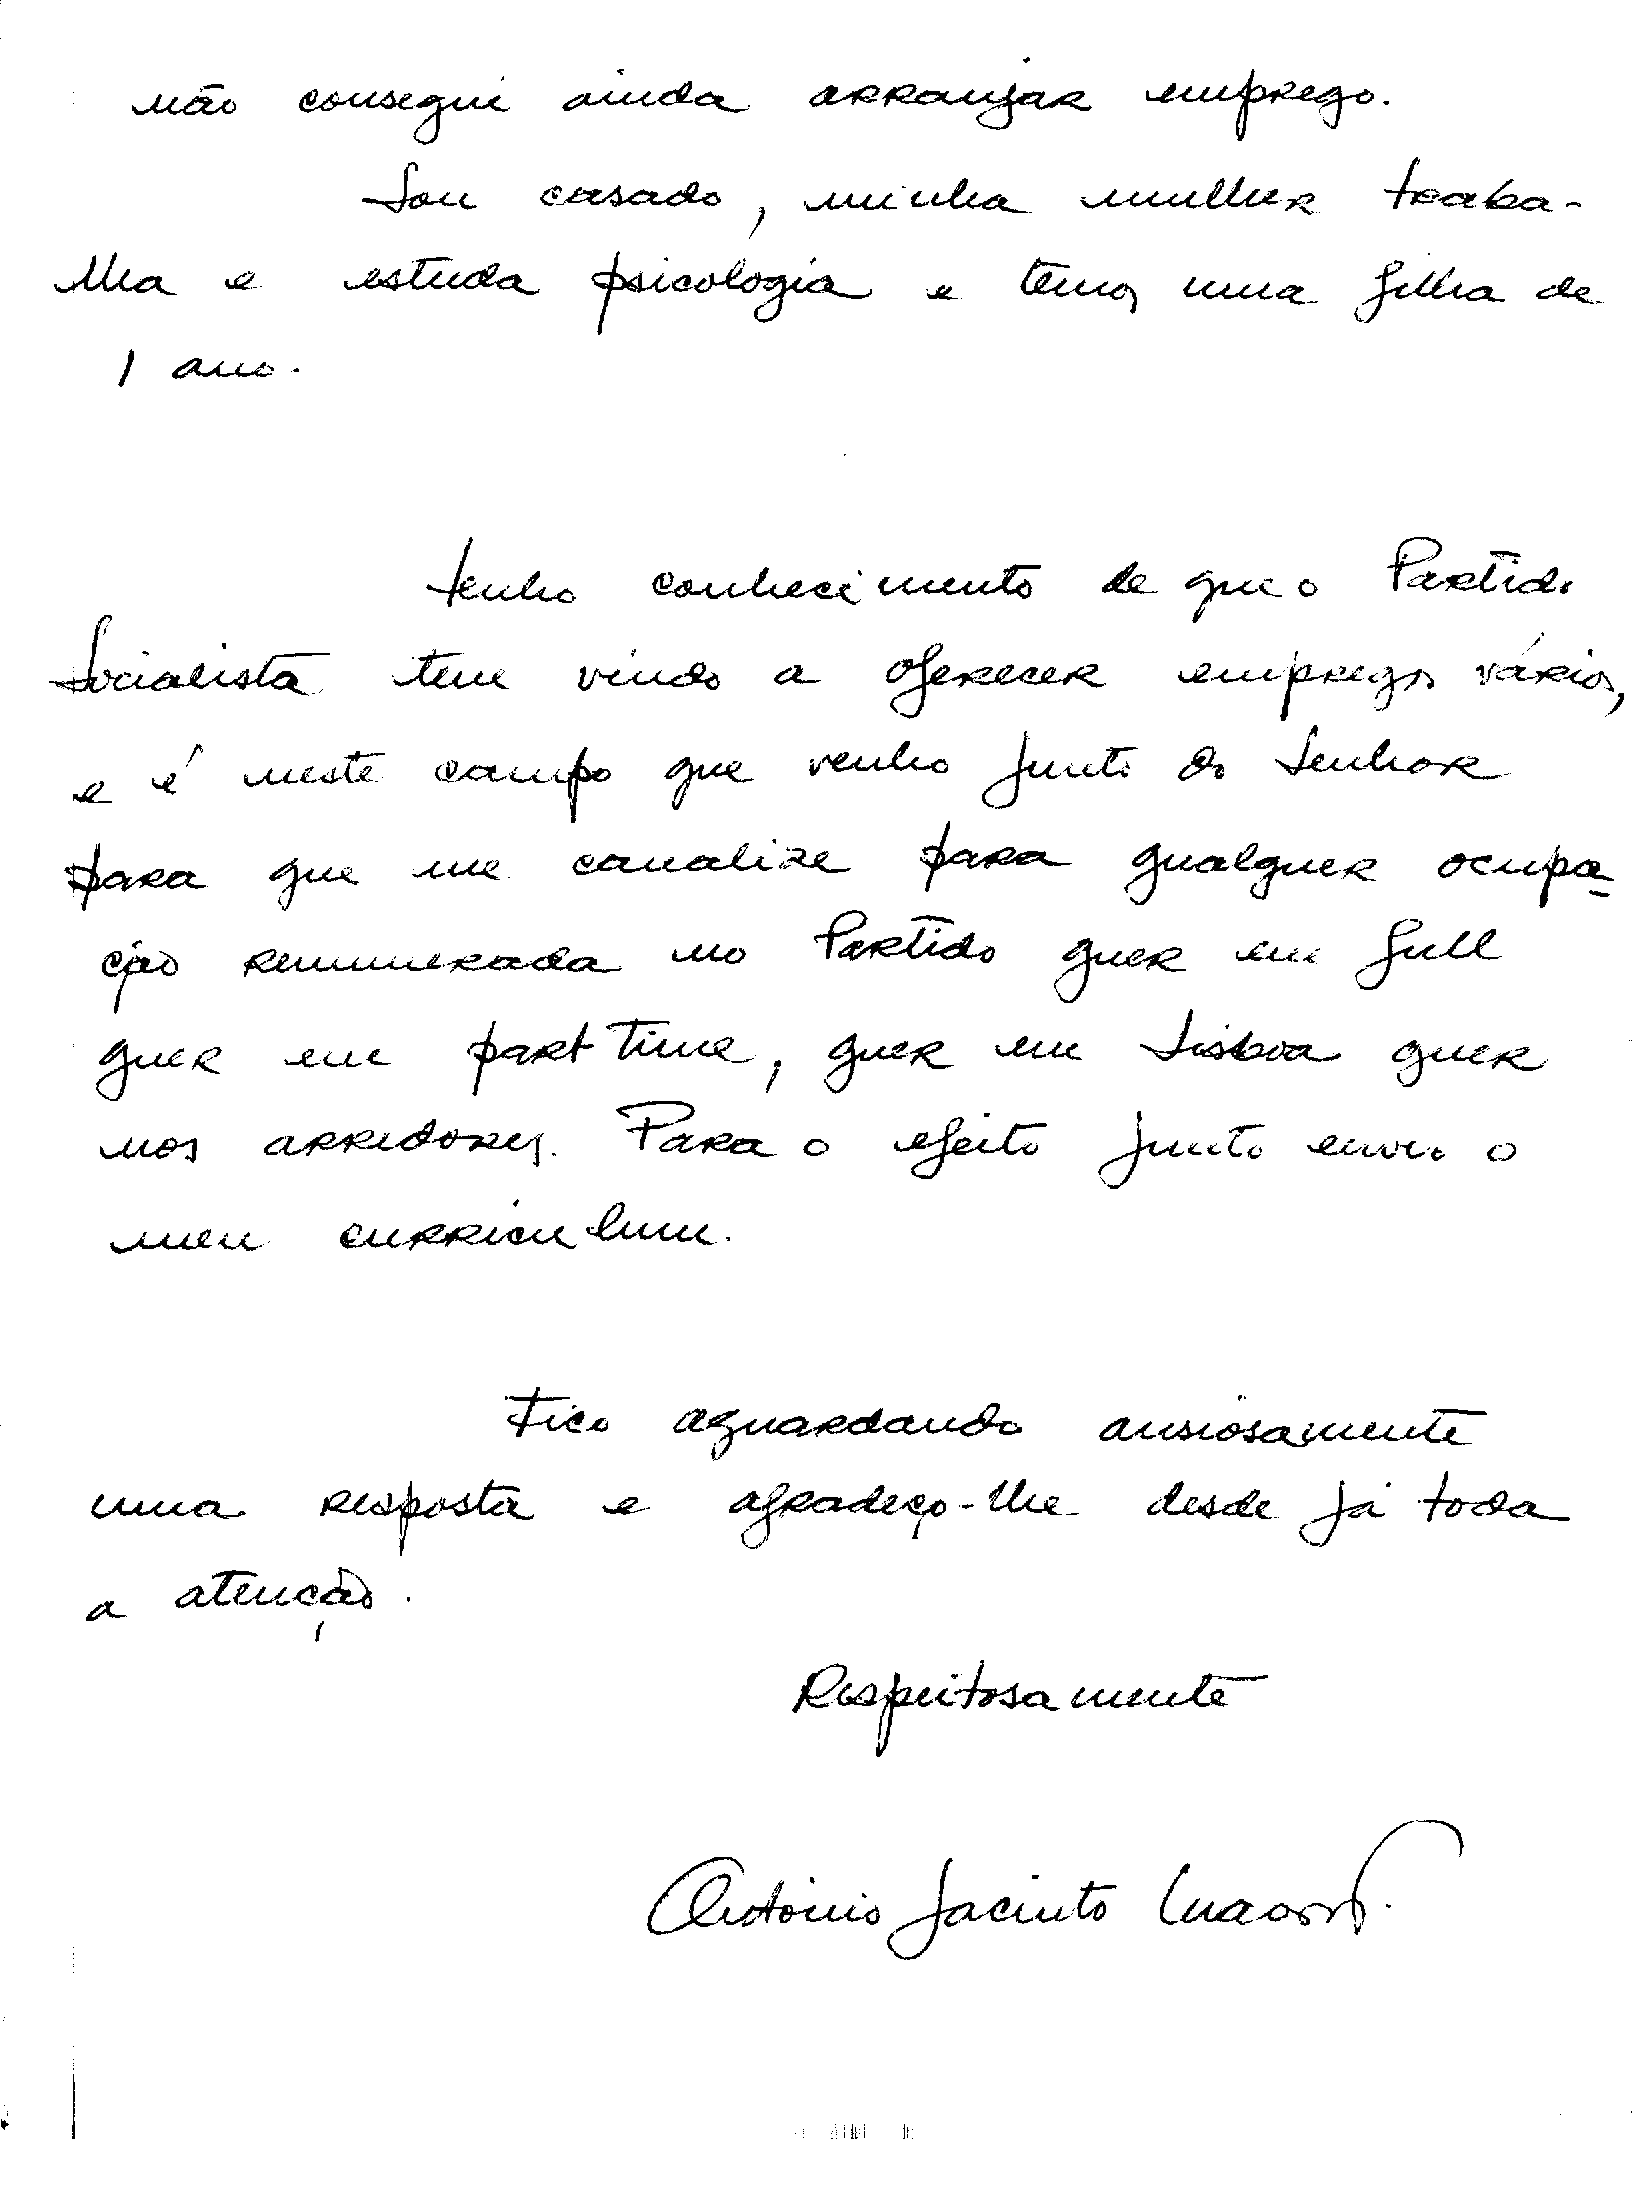 não consegui ainda arranjar emprego.
Sou casado, minha mulher traba-
lha e estuda psicologia e temos uma filha de
1 ano.
Tenho conhecimento de que o Partido
Socialista tem vindo a oferecer empregos vários,
e é neste campo que venho junto do Senhor
para que me canalize para qualquer ocupa-
ção remunerada no Partido quer em full
quer em part time, quer em Lisboa quer
nos arredores. Para o efeito junto envio o
meu curriculum.
Fico aguardando ansiosamente
uma resposta e agradeço-lhe desde já toda
a atenção.
Respeitosamente
António Jacinto